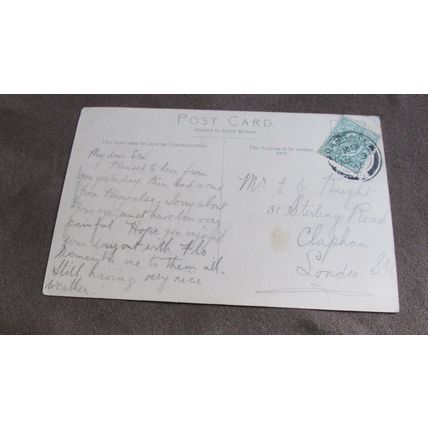 POST CARD.
Printed in Great Britain
This space may be used for Communication.
The Address to be written
here
My dear
Pleased to hear from
you yesterday. Him had a card
from Percy also. Sorry about
your eye, must have been very
painful. Hope you enjoyed
your day out with Flo
Remember me to them all.
Still having very nice
weather.
Mr E. J. Knight
31 Stirling Road
Clapham
London SW